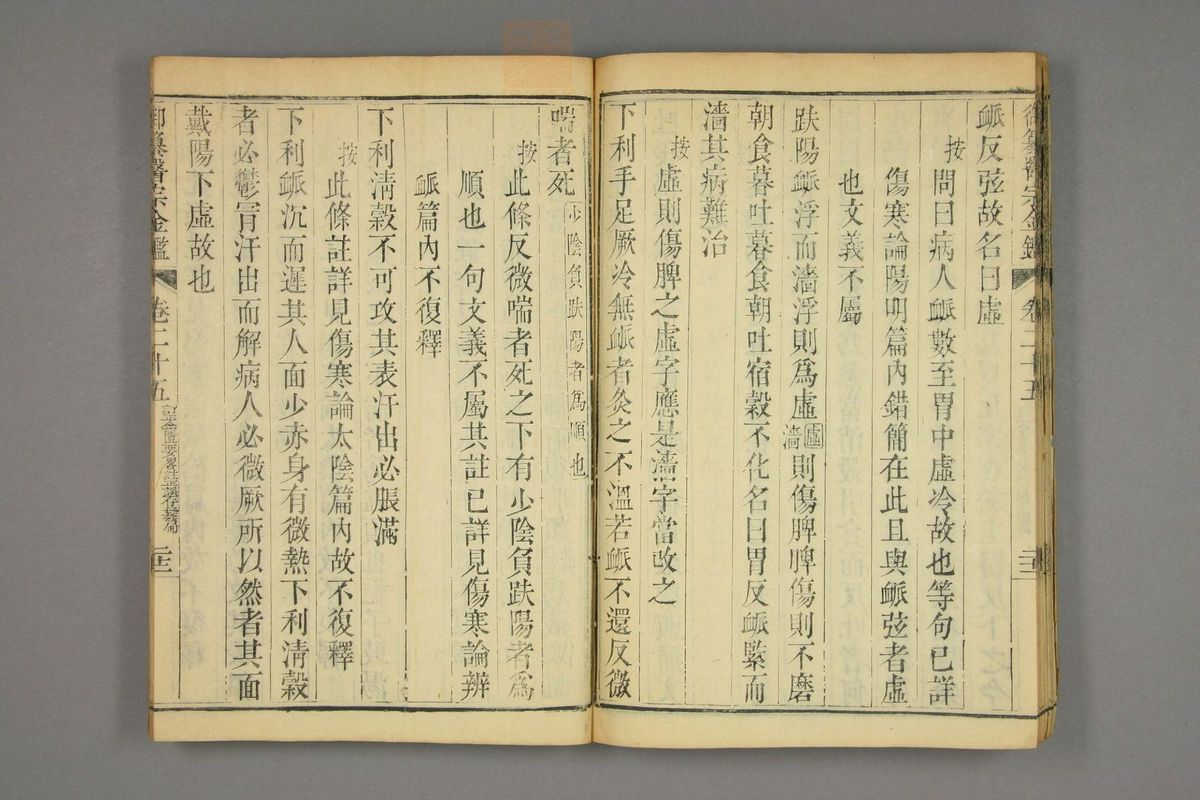 御纂醫宗金鑑 卷二十五
脈反弦故名曰虛
按問曰病人脈數至胃中虛冷故也等句已詳
傷寒論陽明篇內錯簡在此且與脈弦者虛
也文義不屬
趺陽脈浮而濇浮則爲虛虛濇則傷脾脾傷則不磨
朝食暮吐暮食朝吐宿穀不化名曰胃反脈緊而
濇其病難治
按虛則傷脾之虛字應是濇字當改之
下利手足厥冷無脈者灸之不溫若脈不還反微
喘者死少陰負趺陽者爲順也
按此條反微喘者死之下有少陰負趺陽者爲
順也一句文義不屬其註已詳見傷寒論辨
脈篇內不復釋
下利淸穀不可攻其表汗出必脹滿
按此條註詳見傷寒論太陰篇內故不復釋
下利脈沉而遲其人面少赤身有微熱下利淸穀
者必鬱冒汗出而解病人必微厥所以然者其面
戴陽下虛故也
御纂醫宗金鑑 卷二十五